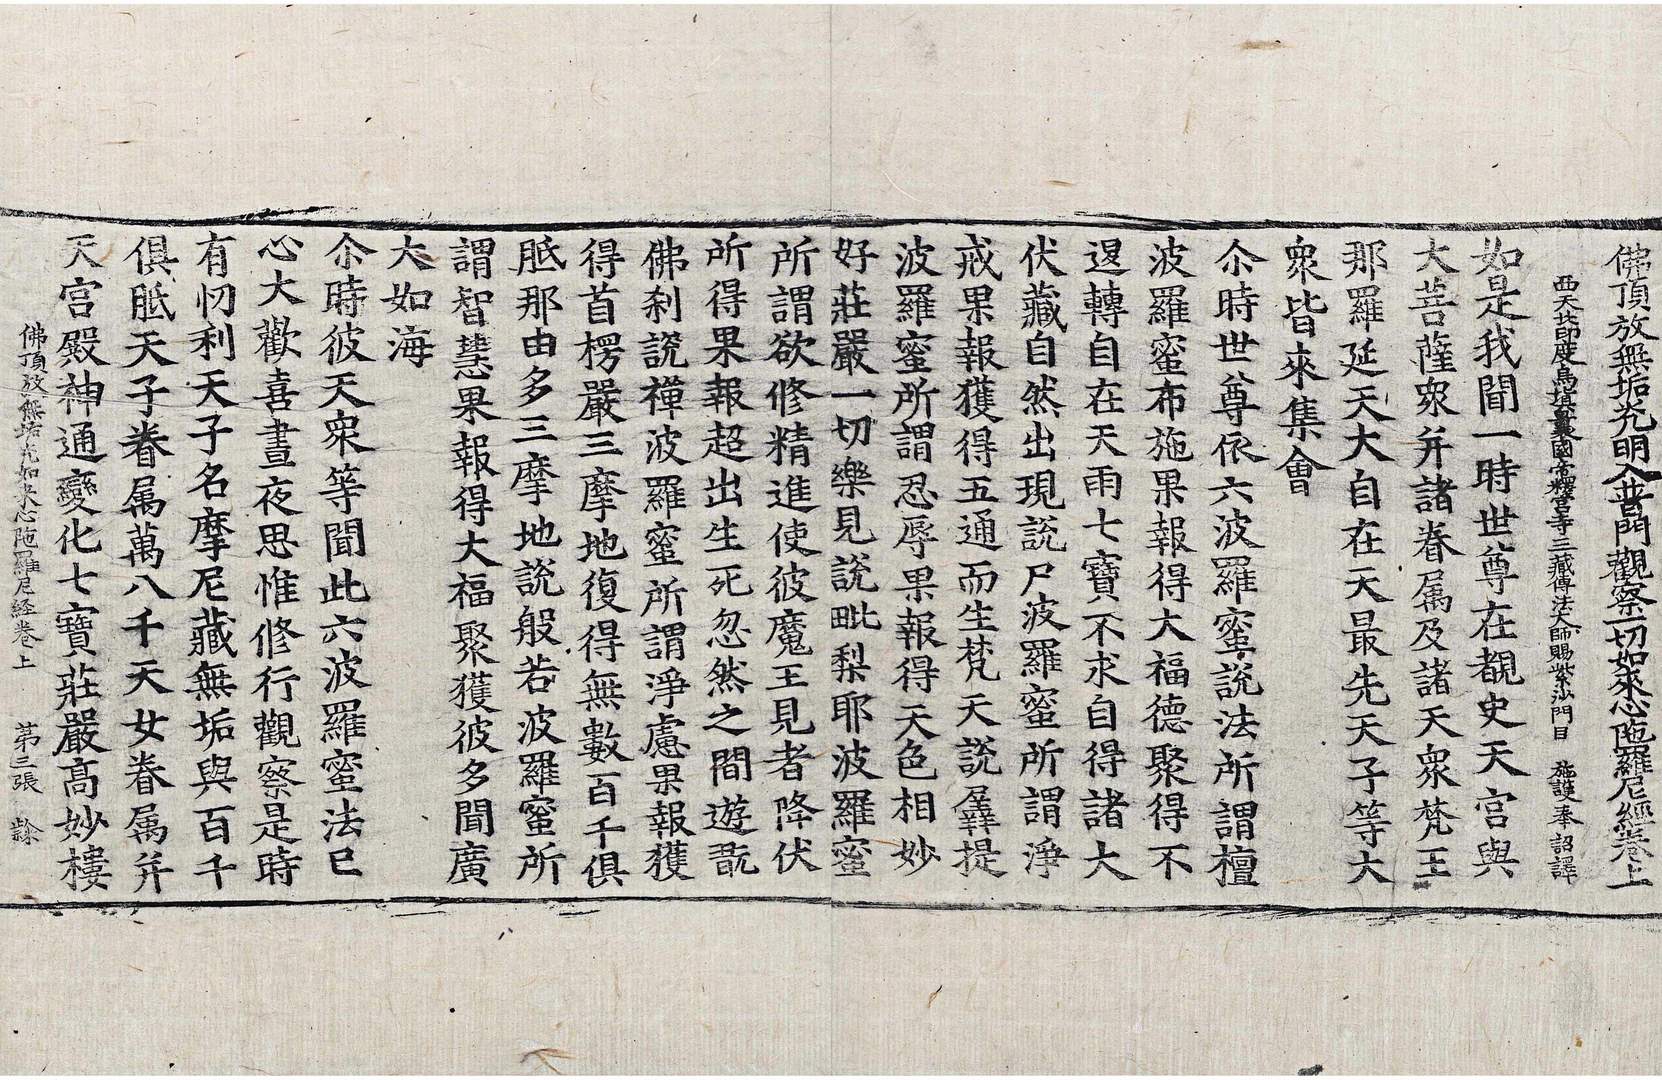 佛頂放無垢光明入普門觀察一切如來心陁羅尼經卷上
西天北印度烏塡曩國帝釋宮寺三藏傳法大師賜紫沙門臣 施護奉 詔譯
如是我聞一時世尊在覩史天宮與
大菩薩衆幷諸眷属及諸天衆梵王
那羅延天大自在天最先天子等大
衆皆來集會
尒時世尊依六波羅蜜說法所謂檀
波羅蜜布施果報得大福德聚得不
退轉自在天雨七寶不求自得諸大
伏藏自然出現說尸波羅蜜所謂淨
戒果報獲得五通而生梵天說羼提
波羅蜜所謂忍辱果報得天色相妙
好莊嚴一切樂見說毗梨耶波羅蜜
所謂欲修精進使彼魔王見者降伏
所得果報超出生死忽然之間遊翫
佛刹說禪波羅蜜所謂淨慮果報獲
得首楞嚴三摩地復得無數百千俱
胝那由多三摩地說般若波羅蜜所
謂智慧果報得大福聚獲彼多聞廣
大如海
尒時彼天衆等聞此六波羅蜜法已
心大歡喜晝夜思惟修行觀察是時
有忉利天子名摩尼藏無垢與百千
俱胝天子眷属萬八千天女眷属幷
天宮殿神通變化七寶莊嚴高妙樓
佛頂放無垢光如來心陁羅尼経卷上 第三張